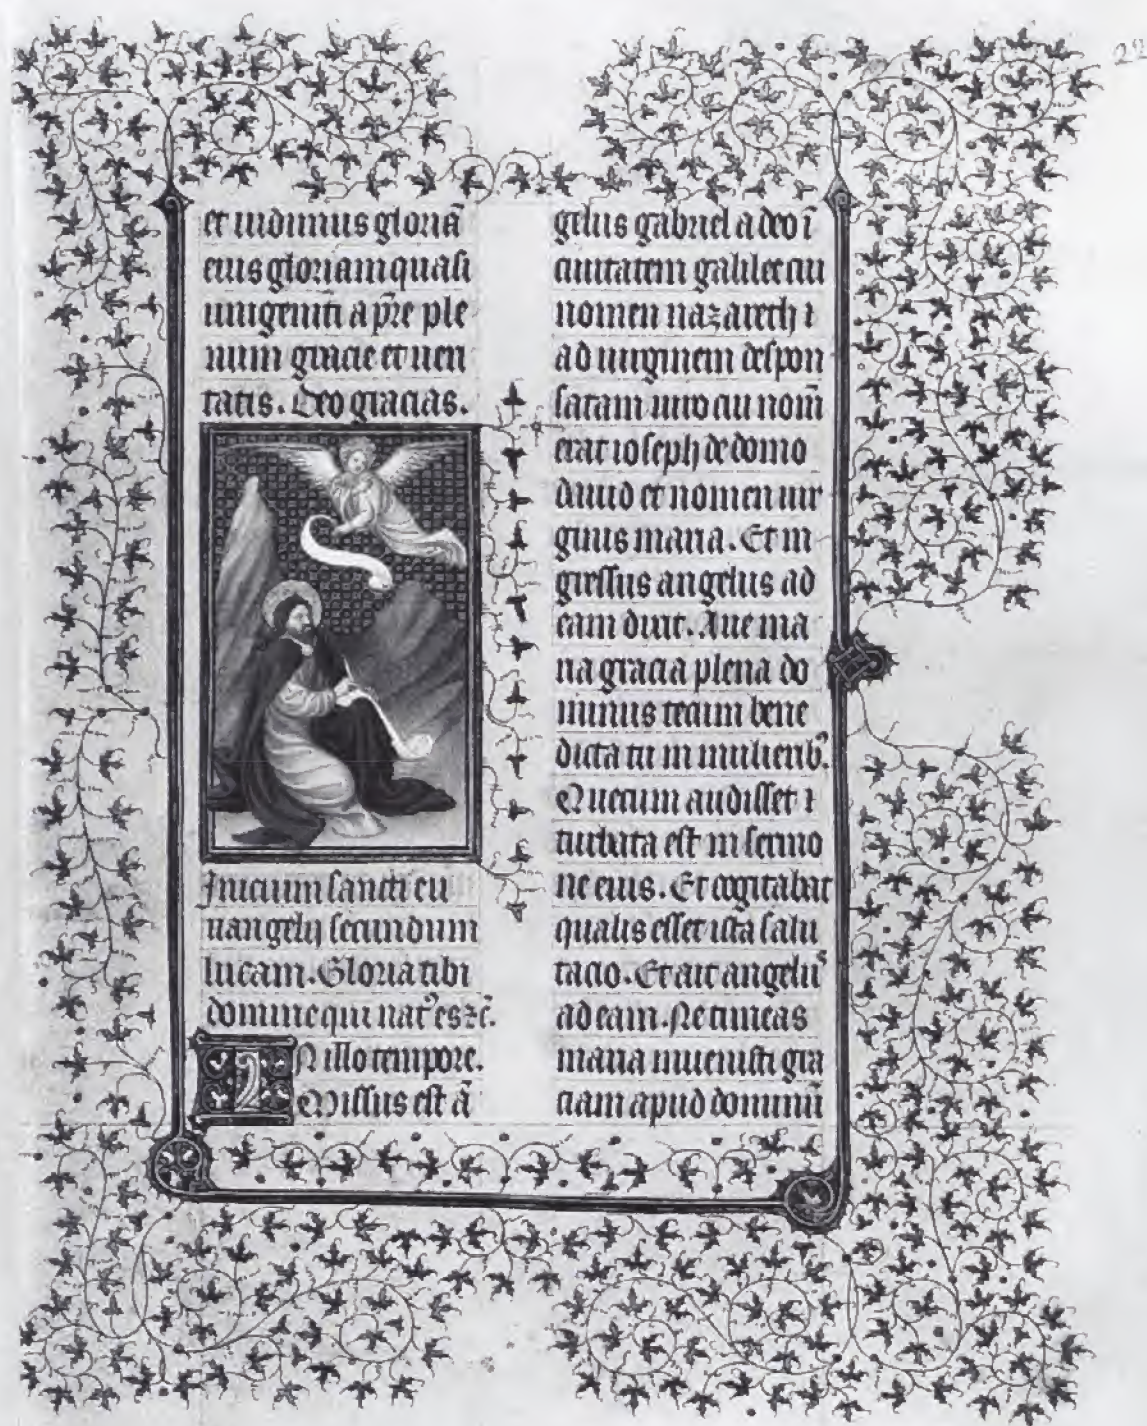 et uidimus gloriã
eius gloriam quasi
unigeniti a p̃re ple
num gracie et ueri
tatis. Deo gracias.
Inicium sancti eu
uangelij secundum
lucam. Gloria tibi
domine qui nat᾽ es ⁊c̃.
IN illo tempore.
Missus est ã
gelus gabriel a deo ĩ
ciuitatem galilee cui
nomen nazareth ⁊
ad uirginem despon
satam uiro cui nom̃
erat ioseph de domo
dauid et nomen uir
ginis maria. Et in
gressus angelus ad
eam dixit. Aue ma
ria gracia plena do
minus tecum bene
dicta tu in mulierib᾽.
Que cum audisset ⁊
turbata est in sermo
ne eius. Et cogitabat
qualis esset ista salu
tacio. Et ait angelu᾽
ad eam. Ne timeas
maria inuenisti gra
ciam apud dominũ